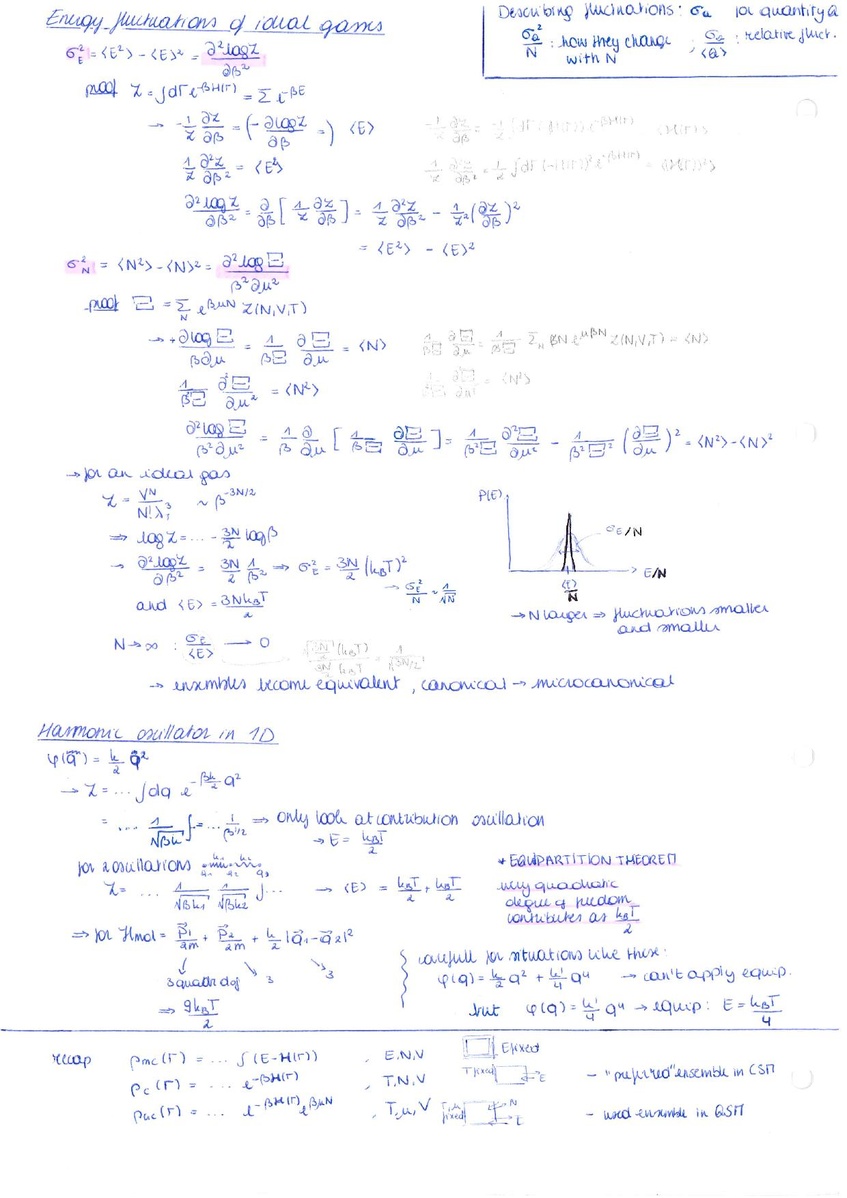 Energy fluctuations of ideal gasses
Describing fluctuations: σ_a for quantity a
σ_a²/N : how they change with N ; σ_a/⟨a⟩ : relative fluct.
σ_E² = ⟨E²⟩ - ⟨E⟩² = ∂²logZ/∂β²
proof Z = ∫dΓ e^{-βH(Γ)} = Σ e^{-βE}
→ -1/Z ∂Z/∂β = (-∂logZ/∂β =) ⟨E⟩
1/Z ∂²Z/∂β² = ⟨E²⟩
∂²logZ/∂β² = ∂/∂β [1/Z ∂Z/∂β] = 1/Z ∂²Z/∂β² - 1/Z² (∂Z/∂β)²
= ⟨E²⟩ - ⟨E⟩²
σ_N² = ⟨N²⟩ - ⟨N⟩² = ∂²logΞ/β²∂μ²
proof Ξ = Σ_N e^{βμN} Z(N,V,T)
→ +∂logΞ/β∂μ = 1/βΞ ∂Ξ/∂μ = ⟨N⟩ 1/βΞ ∂Ξ/∂μ = 1/βΞ Σ_N βN e^{μβN} Z(N,V,T) = ⟨N⟩
1/β²Ξ ∂²Ξ/∂μ² = ⟨N²⟩
∂²logΞ/β²∂μ² = 1/β ∂/∂μ [1/βΞ ∂Ξ/∂μ] = 1/β²Ξ ∂²Ξ/∂μ² - 1/β²Ξ² (∂Ξ/∂μ)² = ⟨N²⟩ - ⟨N⟩²
→ for an ideal gas
Z = V^N/N!λ³ ~ β^{-3N/2}
⇒ logZ = ... - 3N/2 logβ
→ ∂²logZ/∂β² = 3N/2 1/β² ⇒ σ_E² = 3N/2 (k_BT)²
→ σ_E²/N ~ 1/√N
and ⟨E⟩ = 3Nk_BT/2
P(E)
σ_E/N
E/N
⟨E⟩/N
→ N larger ⇒ fluctuations smaller
and smaller
N→∞ : σ_E/⟨E⟩ → 0 √(3N/2) (k_BT) / 3N/2 k_BT = 1/√(3N/2)
→ ensembles become equivalent, canonical → microcanonical
Harmonic oscillator in 1D
φ(q) = k/2 q²
→ Z = ... ∫dq e^{-βk/2 q²}
= ... 1/√βk ∫ = ... 1/β^{1/2} ⇒ only look at contribution oscillation
→ E = k_BT/2
for 2 oscillations k₁ k₂
q₁ q₂ q₃
Z = ... 1/√βk₁ 1/√βk₂ ∫... → ⟨E⟩ = k_BT/2 + k_BT/2
* EQUIPARTITION THEOREM
every quadratic
degree of freedom
contributes as k_BT/2
⇒ for Hmol = p₁²/2m + p₂²/2m + k/2 |q₁ - q₂|²
3 quadr dof 3 3
⇒ 9k_BT/2
carefull for situations like these:
φ(q) = k/2 q² + k'/4 q⁴ → can't apply equip.
but φ(q) = k'/4 q⁴ → equip: E = k_BT/4
recap ρmc(Γ) = ... ∫(E-H(Γ)) , E,N,V E fixed
ρc(Γ) = ... e^{-βH(Γ)} , T,N,V T fixed E - "preferred" ensemble in CSM
ρuc(Γ) = ... e^{-βH(Γ)} e^{βμN} , T,μ,V T,μ fixed N E - used ensemble in QSM